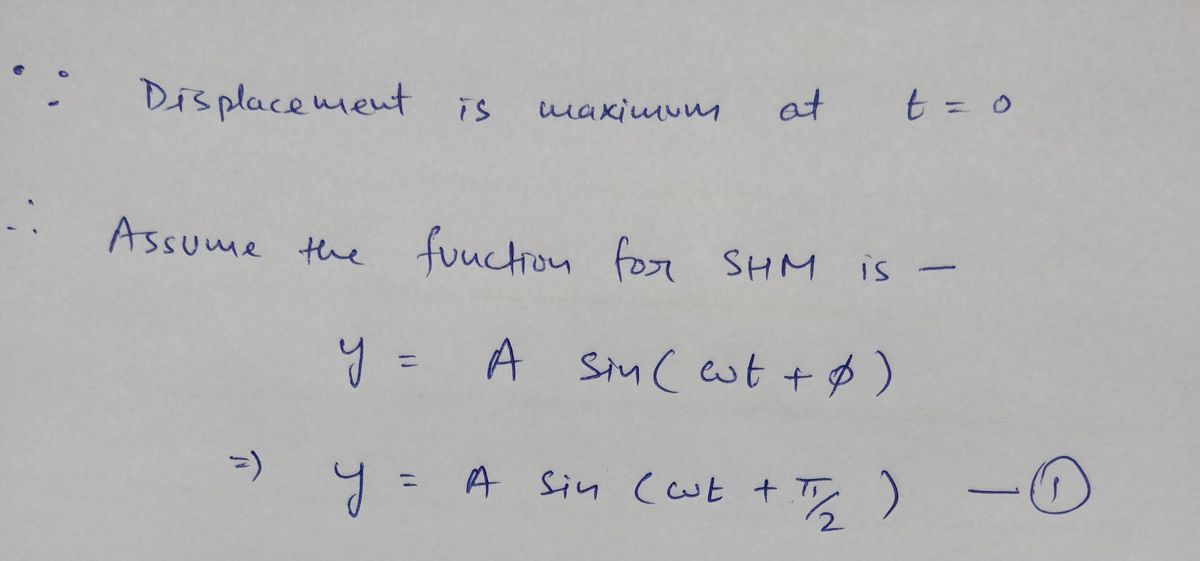 ∵ Displacement is maximum at t = 0
∴ Assume the function for SHM is -
y = A sin( ωt + ϕ )
=) y = A sin ( ωt + π/2 ) — ①